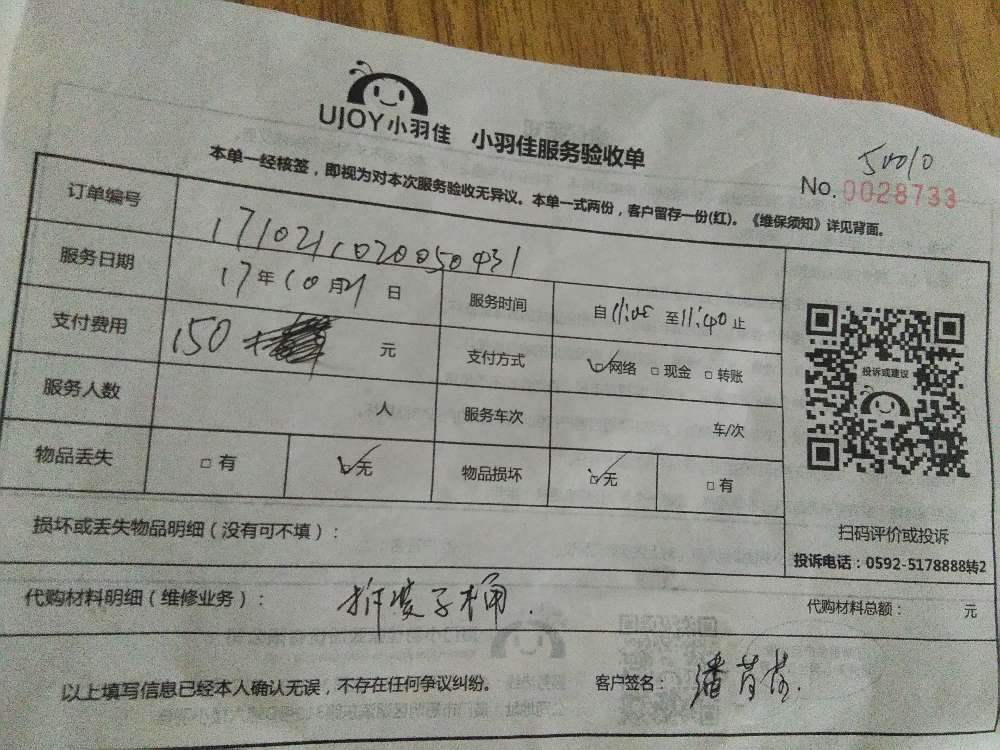 UJOY小羽佳 小羽佳服务验收单
50010
No. 0028733
本单一经核签，即视为对本次服务验收无异议。本单一式两份，客户留存一份(红)。《维保须知》详见背面。
订单编号 171021020050431
服务日期 17年10月21日 服务时间 自11:05至11:40止
支付费用 150 元 支付方式 ☑网络 □现金 □转账
服务人数 人 服务车次 车/次
物品丢失 □有 ☑无 物品损坏 ☑无 □有
投诉或建议
扫码评价或投诉
投诉电话：0592-5178888转2
损坏或丢失物品明细（没有可不填）：
代购材料明细（维修业务）： 拆凌子桶. 代购材料总额： 元
以上填写信息已经本人确认无误，不存在任何争议纠纷。 客户签名： 潘